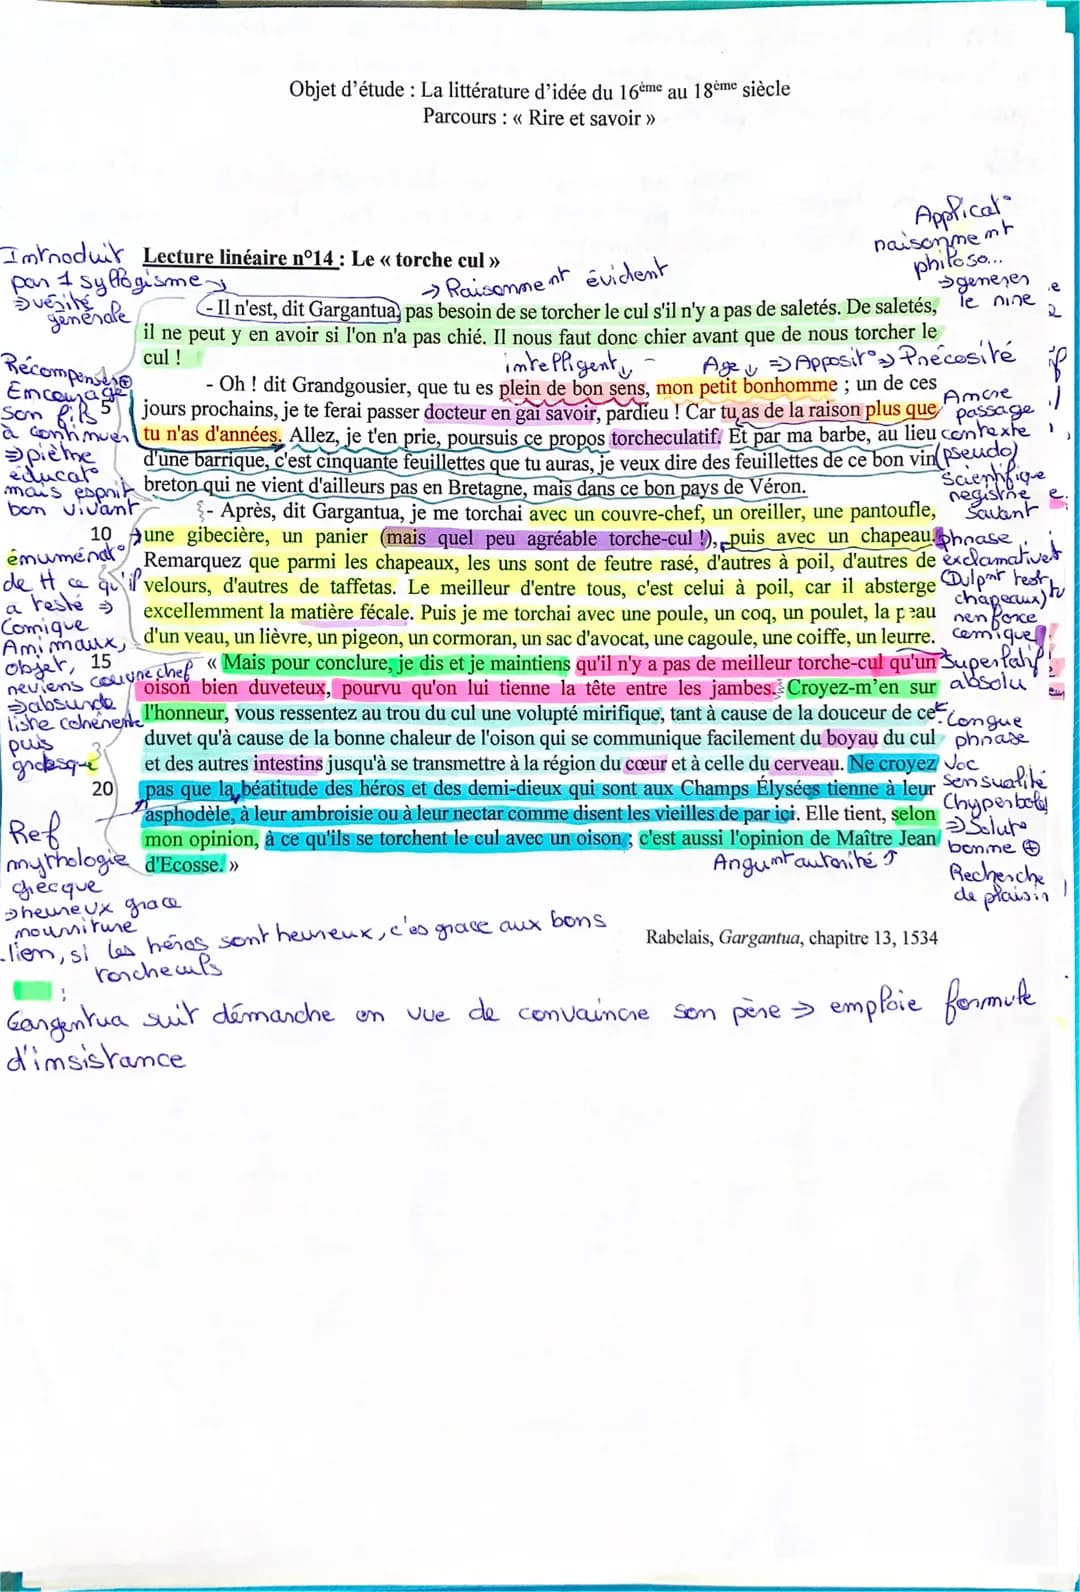 Objet d'étude : La littérature d'idée du 16ème au 18ème siècle
Parcours : « Rire et savoir »
Applicat°
raisonnement
philoso...
⇒ generer
le rire
Introduit
par 1 syllogisme
⇒ vérité
générale
Lecture linéaire n°14 : Le « torche cul »
→ Raisonnement évident
- Il n'est, dit Gargantua, pas besoin de se torcher le cul s'il n'y a pas de saletés. De saletés,
il ne peut y en avoir si l'on n'a pas chié. Il nous faut donc chier avant que de nous torcher le
cul !
intelligent
Age ⇒ Apposit° ⇒ Précosité
Récompense ⊕
Encourage
son fils
à continuer
⇒ piètre
éducat°
mais esprit
bon vivant
- Oh ! dit Grandgousier, que tu es plein de bon sens, mon petit bonhomme ; un de ces
5 jours prochains, je te ferai passer docteur en gai savoir, pardieu ! Car tu as de la raison plus que
tu n'as d'années. Allez, je t'en prie, poursuis ce propos torcheculatif. Et par ma barbe, au lieu
d'une barrique, c'est cinquante feuillettes que tu auras, je veux dire des feuillettes de ce bon vin
breton qui ne vient d'ailleurs pas en Bretagne, mais dans ce bon pays de Véron.
Ancre
passage
contexte
(pseudo)
scientifique
registre
savant
- Après, dit Gargantua, je me torchai avec un couvre-chef, un oreiller, une pantoufle,
10 une gibecière, un panier (mais quel peu agréable torche-cul !), puis avec un chapeau.
Remarquez que parmi les chapeaux, les uns sont de feutre rasé, d'autres à poil, d'autres de
velours, d'autres de taffetas. Le meilleur d'entre tous, c'est celui à poil, car il absterge
excellemment la matière fécale. Puis je me torchai avec une poule, un coq, un poulet, la peau
d'un veau, un lièvre, un pigeon, un cormoran, un sac d'avocat, une cagoule, une coiffe, un leurre.
énumérat°
de tt ce qu'il
a testé ⇒
Comique
Animaux,
objet,
reviens couvre chef
⇒ absurde
liste cohérente
puis
grotesque
phrase
exclamative
chapeaux)
renforce
comique
Superlatif
absolu
15 « Mais pour conclure, je dis et je maintiens qu'il n'y a pas de meilleur torche-cul qu'un
oison bien duveteux, pourvu qu'on lui tienne la tête entre les jambes. Croyez-m'en sur
l'honneur, vous ressentez au trou du cul une volupté mirifique, tant à cause de la douceur de ce
duvet qu'à cause de la bonne chaleur de l'oison qui se communique facilement du boyau du cul
et des autres intestins jusqu'à se transmettre à la région du cœur et à celle du cerveau. Ne croyez
20 pas que la béatitude des héros et des demi-dieux qui sont aux Champs Élysées tienne à leur
asphodèle, à leur ambroisie ou à leur nectar comme disent les vieilles de par ici. Elle tient, selon
mon opinion, à ce qu'ils se torchent le cul avec un oison ; c'est aussi l'opinion de Maître Jean
d'Ecosse. »
Longue
phrase
Voc
sensualité
(hyperbole)
bonne ⊕
Recherche
de plaisir
Argumt autorité
Ref
mythologie
grecque
⇒ heureux grace
nourriture
lien, si les héros sont heureux, c'es grace aux bons
torcheculs
Rabelais, Gargantua, chapitre 13, 1534
:
Gargentua suit démarche en vue de convaincre son père ⇒ emploie formule
d'insistance